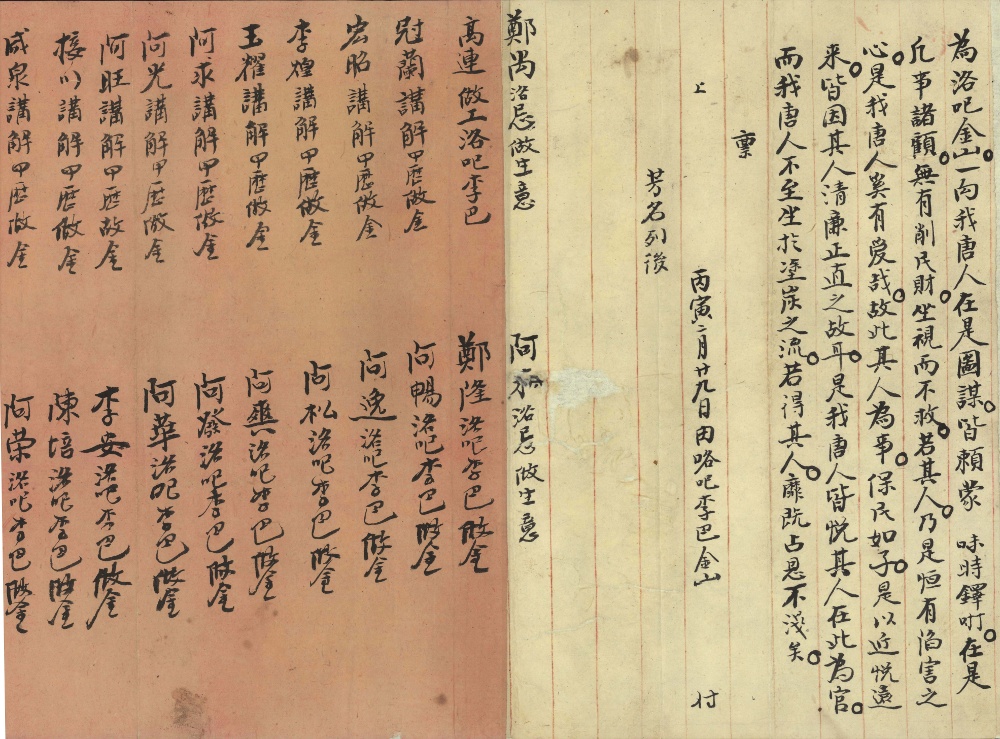 為洛吧金山一勾我唐人在是圖謀皆頼蒙 味時鐸咑在是
凢事諸顧無有削民財坐視而不救若其人乃是恒有陷害之
心是我唐人奚有爱哉故此其人為事保民如子是以近悦遠
来皆因其人清廉正直之故耳是我唐人皆悦其人在此為官
而我唐人不至坐於塗炭之流若得其人靡既占恩不淺矣
稟
上
丙寅二月廿九日由咯吧李巴金山 付
芳名列後
鄭禺洺忌做生意
阿 洺忌做生意
高連做工洛吧李巴
鄭隆洺吧李巴做金
尉蘭講解甲歷做金
阿暢洺吧李巴做金
宏昭講解甲歷做金
阿逸洺吧李巴做金
李煌講解甲歷做金
阿松洺吧李巴做金
王耀講解甲歷做金
阿興洺吧李巴做金
阿求講解甲歷做金
阿發洺吧李巴做金
阿光講解甲歷做金
阿華洺吧李巴做金
阿旺講解甲歷做金
李安洺吧李巴做金
接以講解甲歷做金
陳培洺吧李巴做金
咸泉講解甲歷做金
阿荣洺吧李巴做金